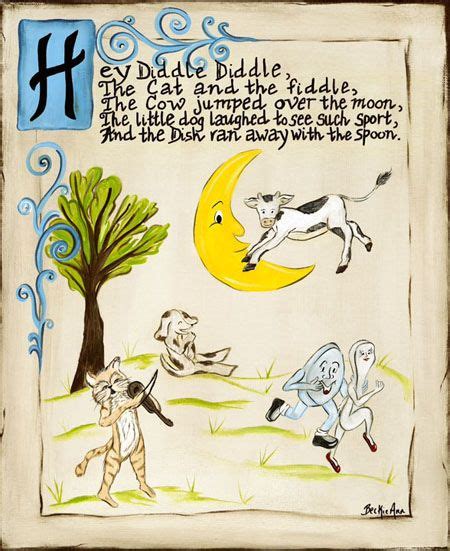 Hey Diddle Diddle,
The Cat and the fiddle,
The Cow jumped over the moon,
The little dog laughed to see such sport,
And the Dish ran away with the spoon.
BecKie Ann